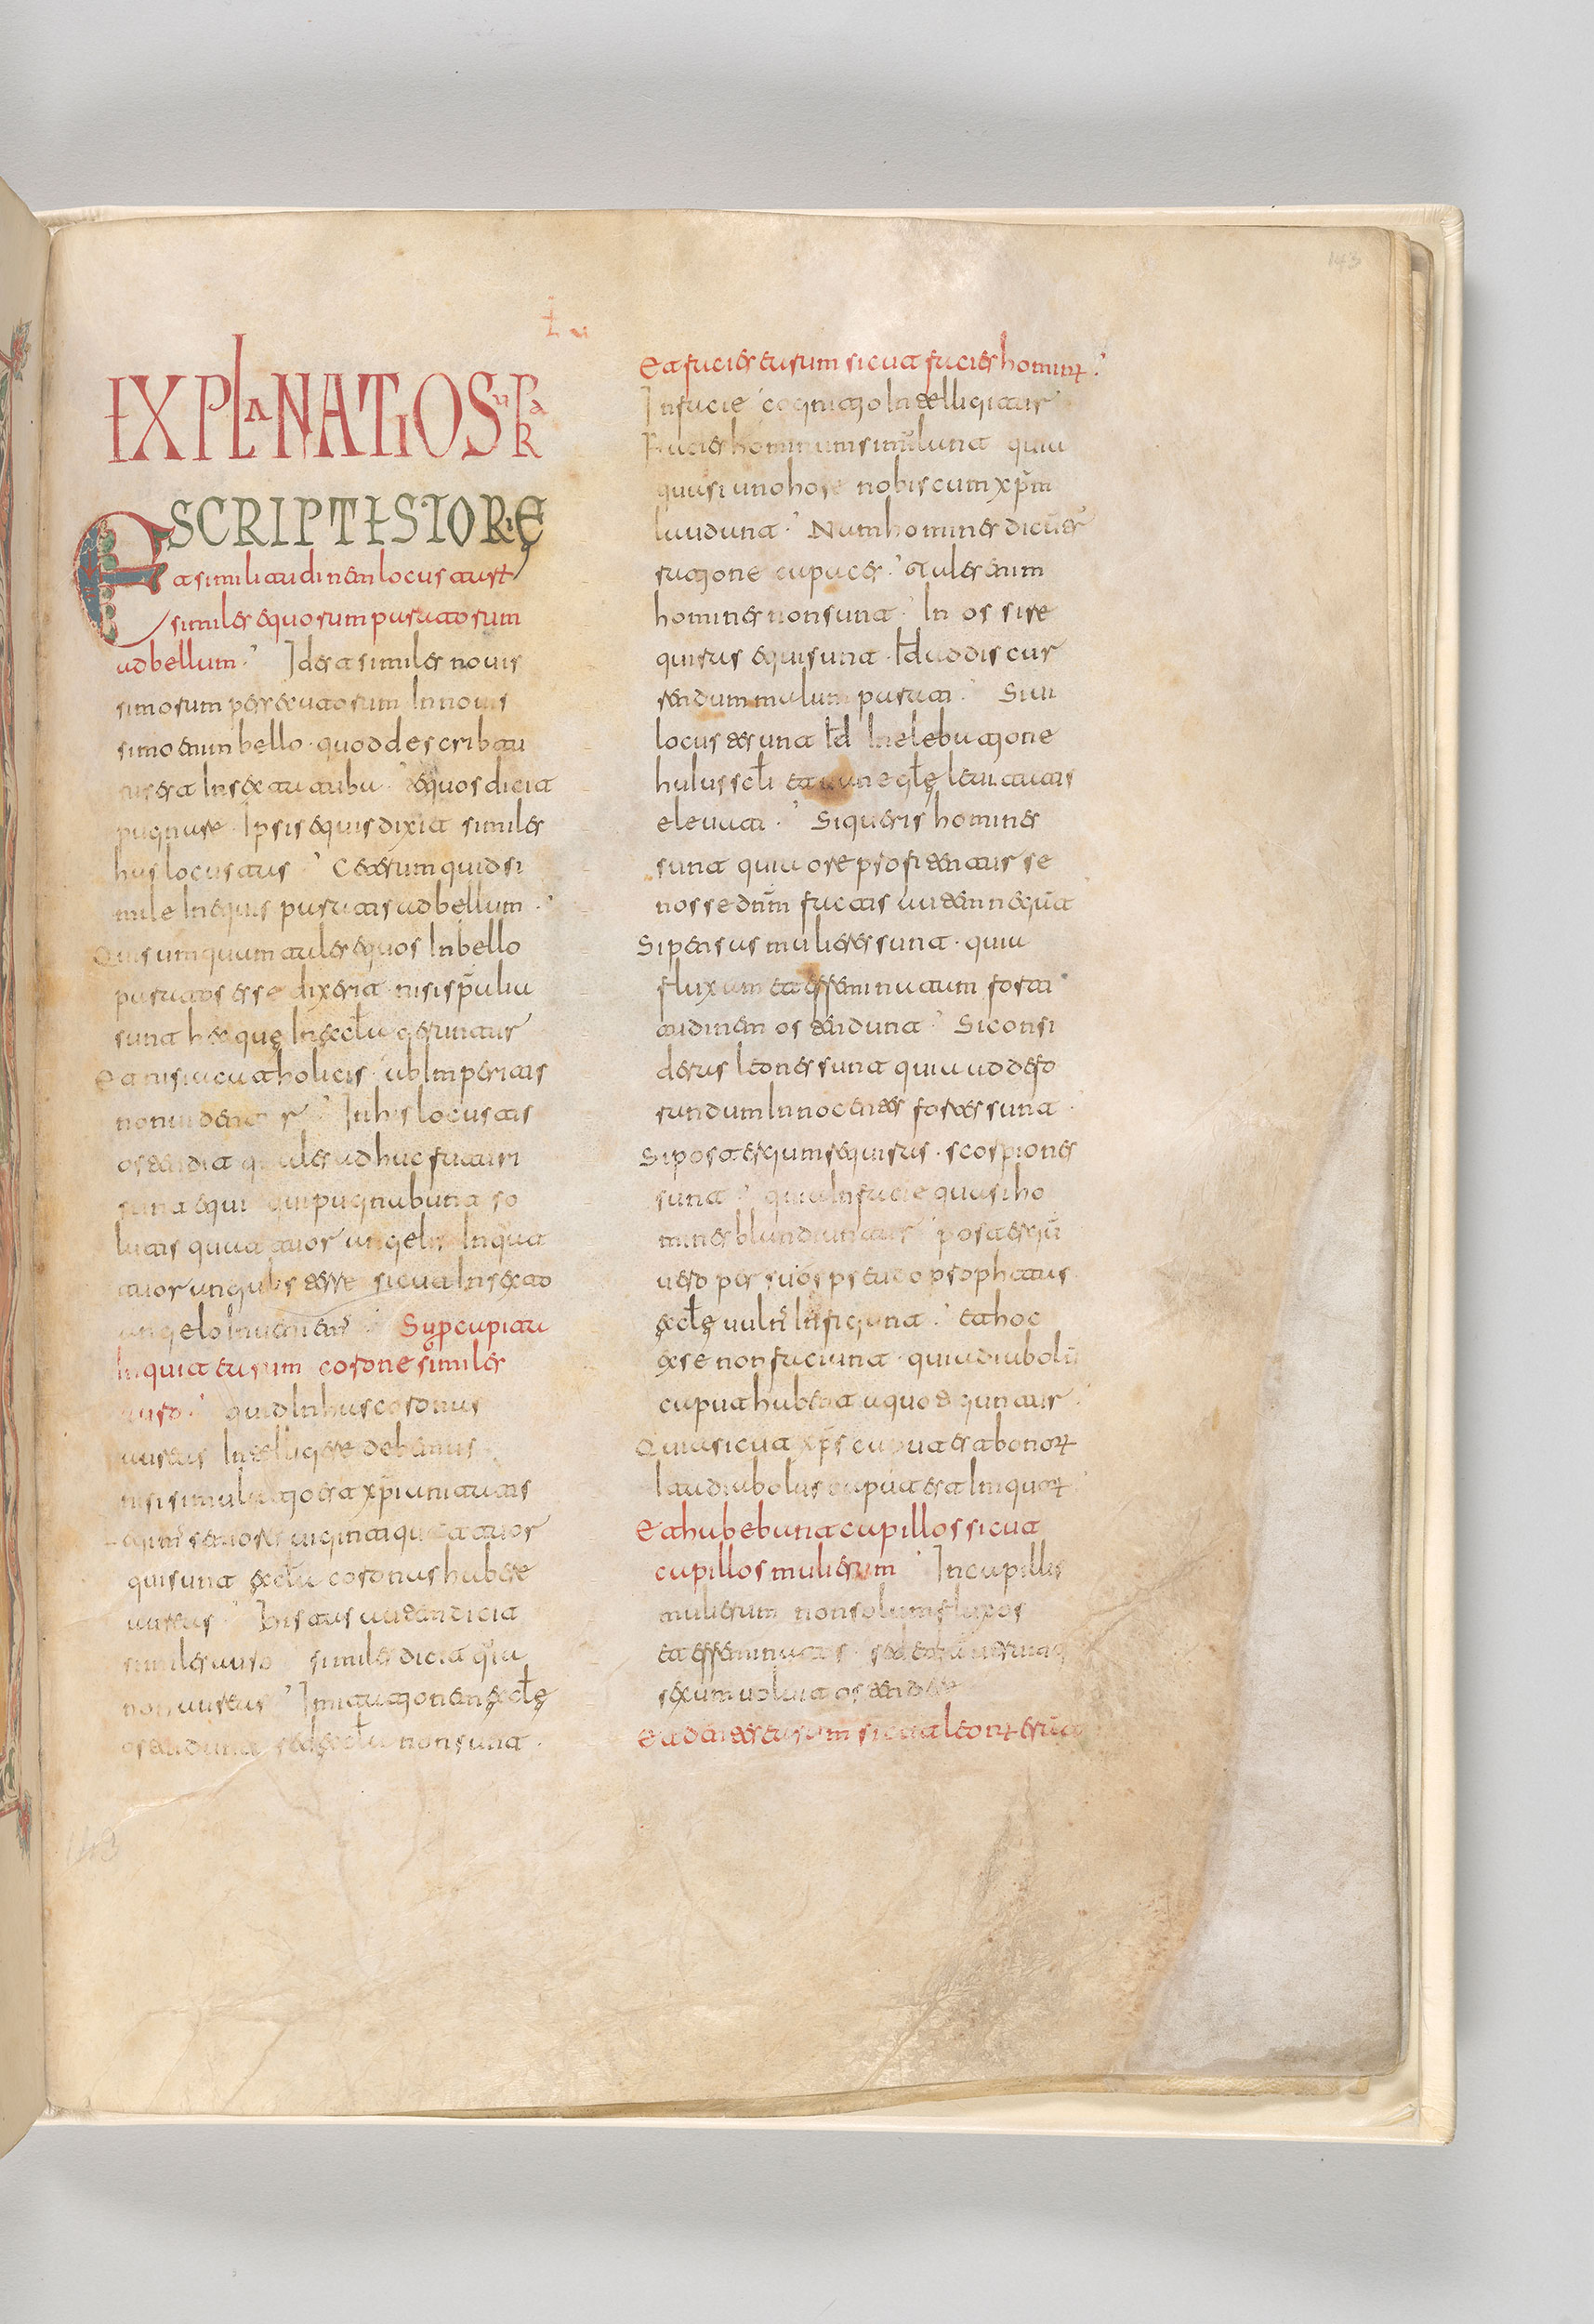 143
EXPLANATIO SUPRA
SCRIPTE STORIE
Et similitudinem locustarꝝ
similes equorum paratorum
ad bellum. Id est similes novis
simorum persecutorum In novis
simo enim bello. quod describitu
rus erat In sexta tuba. equos dicit
pugnare. Ipsis equis dixit similes
has locustas. Ceterum quid si
mile In equis paratis ad bellum.
Quis umquam tales equos In bello
paratos esse dixerit. nisi spāalia
sunt hec quę In ęcƚa geruntur
Et nisi a catholicis. ab Imperitis
non videntur. In his locustis
ostendit quales adhuc futuri
sunt equi qui pugnabunt so
lutis quattuor angelis In quat
tuor angulis terre sicut In sexto
angelo Invenient. Super capita
In quit earum corone similes
auro. quid In has coronas
aureas Intelligere debemus
nisi simulatio est xp̄ianitatis
Etenim seniores viginti quattuor
qui sunt ęcƚa coronas habere
aureas. Istas autem dicit
similes auro similes dicit quia
non aureas. Imitationem ęcƚę
ostendunt sed ęcƚa non sunt.
Et facies earum sicut facies hominꝝ.
In facie cognitio Intelligitur
Facies hominum simulant quia
quasi uno hore nobiscum xp̄m
laudant. Nam homines dicuter
ratione capaces. Tales enim
homines non sunt. In os si re
quiras equi sunt. Id ad discur
rendum malum parati. Si ui
locustes sunt Id In elebatione
huius scƚi et vane gƚę levitatis
elevati. Si queris homines
sunt quia ore profitentur se
nosse dn̄m factis autem negāt
Si pensas mulieres sunt. quia
fluxam et effeminatam forti
tudinem ostendunt. Si consi
deras leones sunt quia ad devo
randum Innocentes fortes sunt.
Si post tergum requiras. scorpiones
sunt. quia In facie quasi ho
mines blandiuntur post tergū
vero per suos pseudo prophetas
ęcƚę vulnꝰ Infigunt. et hoc
ex se non faciunt. quia diabolū
caput habent a quo reguntur.
Quia sicut xp̄s caput est bonorꝝ
Ita diabolus caput est Iniquorꝝ.
Et habebant capillos sicut
capillos mulierum. In capillis
mulierum non solum fluxos
et effeminatos. sed etiā utrumq
sexum voluit ostendere
Et dentes earum sicut leonꝝ erāt
143